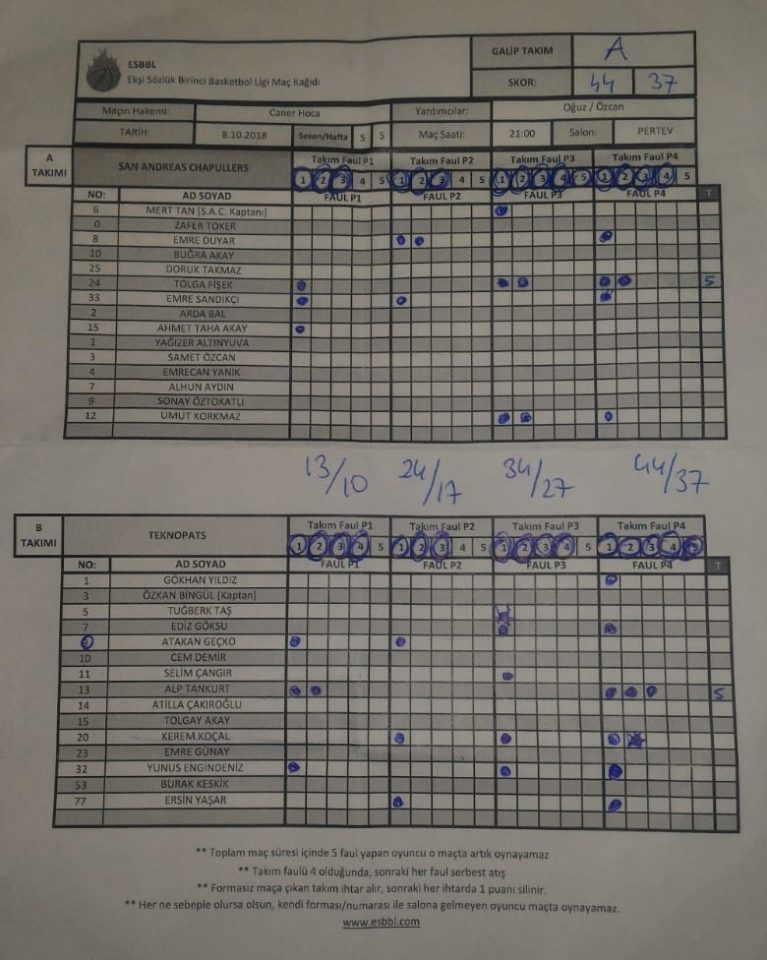 ESBBL
Ekşi Sözlük Birinci Basketbol Ligi Maç Kağıdı
GALİP TAKIM A
SKOR: 44 37
Maçın Hakemi: Caner Hoca Yardımcılar: Oğuz / Özcan
TARİH: 8.10.2018 Sezon/Hafta 5 5 Maç Saati: 21:00 Salon: PERTEV
A TAKIMI
SAN ANDREAS CHAPULLERS
Takım Faul P1 Takım Faul P2 Takım Faul P3 Takım Faul P4
1 2 3 4 5 1 2 3 4 5 1 2 3 4 5 1 2 3 4 5
NO: AD SOYAD FAUL P1 FAUL P2 FAUL P3 FAUL P4 T
6 MERT TAN [S.A.C. Kaptanı]
0 ZAFER TOKER
8 EMRE DUYAR
10 BUĞRA AKAY
25 DORUK TAKMAZ
24 TOLGA FİŞEK 5
33 EMRE SANDIKÇI
2 ARDA BAL
15 AHMET TAHA AKAY
1 YAĞIZER ALTINYUVA
3 SAMET ÖZCAN
4 EMRECAN YANIK
7 ALHUN AYDIN
9 SONAY ÖZTOKATLI
12 UMUT KORKMAZ
13/10 24/17 34/27 44/37
B TAKIMI
TEKNOPATS
Takım Faul P1 Takım Faul P2 Takım Faul P3 Takım Faul P4
1 2 3 4 5 1 2 3 4 5 1 2 3 4 5 1 2 3 4 5
NO: AD SOYAD FAUL P1 FAUL P2 FAUL P3 FAUL P4 T
1 GÖKHAN YILDIZ
3 ÖZKAN BİNGÜL [Kaptan]
5 TUĞBERK TAŞ
7 EDİZ GÖKSU
ATAKAN GEÇKO
10 CEM DEMİR
11 SELİM ÇANGIR
13 ALP TANKURT 5
14 ATİLLA ÇAKIROĞLU
15 TOLGAY AKAY
20 KEREM KOÇAL
23 EMRE GÜNAY
32 YUNUS ENGİNDENİZ
53 BURAK KESKİK
77 ERSİN YAŞAR
** Toplam maç süresi içinde 5 faul yapan oyuncu o maçta artık oynayamaz
** Takım faulü 4 olduğunda, sonraki her faul serbest atış
** Formasız maça çıkan takım ihtar alır, sonraki her ihtarda 1 puanı silinir.
** Her ne sebeple olursa olsun, kendi forması/numarası ile salona gelmeyen oyuncu maçta oynayamaz.
www.esbbl.com